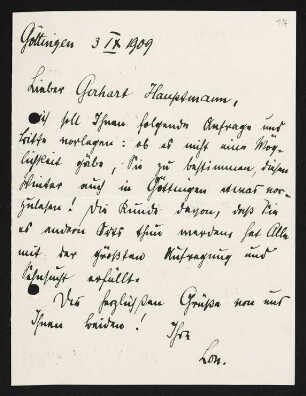 Göttingen 3 IX 1909
Lieber Gerhart Hauptmann,
ich soll Ihnen folgende Anfrage und
Bitte vorlegen: ob es nicht eine Mög-
lichkeit gäbe, Sie zu bestimmen, diesen
Winter auch in Göttingen etwas vor-
zulesen! Die Kunde davon, daß Sie
es andern Orts thun werden, hat Alle
mit der größten Aufregung und
Sehnsucht erfüllt.
Die herzlichsten Grüße von uns
Ihnen beiden!
Ihre
Lou.